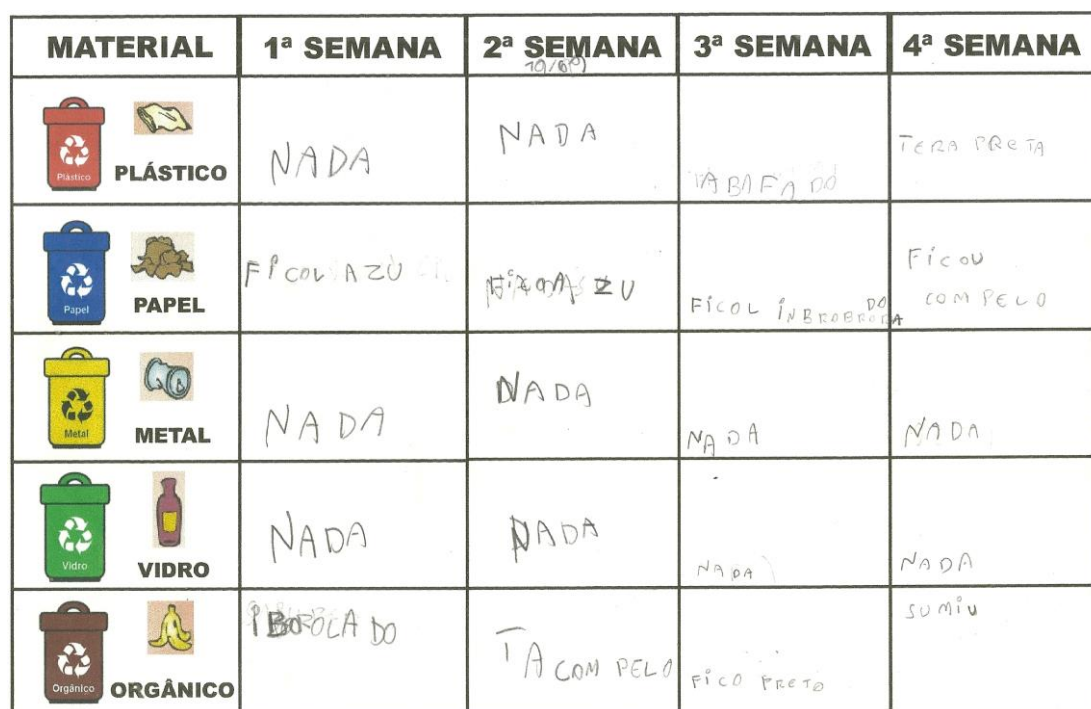 MATERIAL 1ª SEMANA 2ª SEMANA 3ª SEMANA 4ª SEMANA
Plástico
PLÁSTICO
NADA
NADA
ABAFADO
TERA PRETA
Papel
PAPEL
FICOU AZU
AZU
FICOL INBROBRORA
DO
FICOU
COM PELO
Metal
METAL
NADA
NADA
NADA
NADA
Vidro
VIDRO
NADA
NADA
NADA
NADA
Orgânico
ORGÂNICO
IBOROLADO
TA COM PELO
FICO PRETO
SUMIU